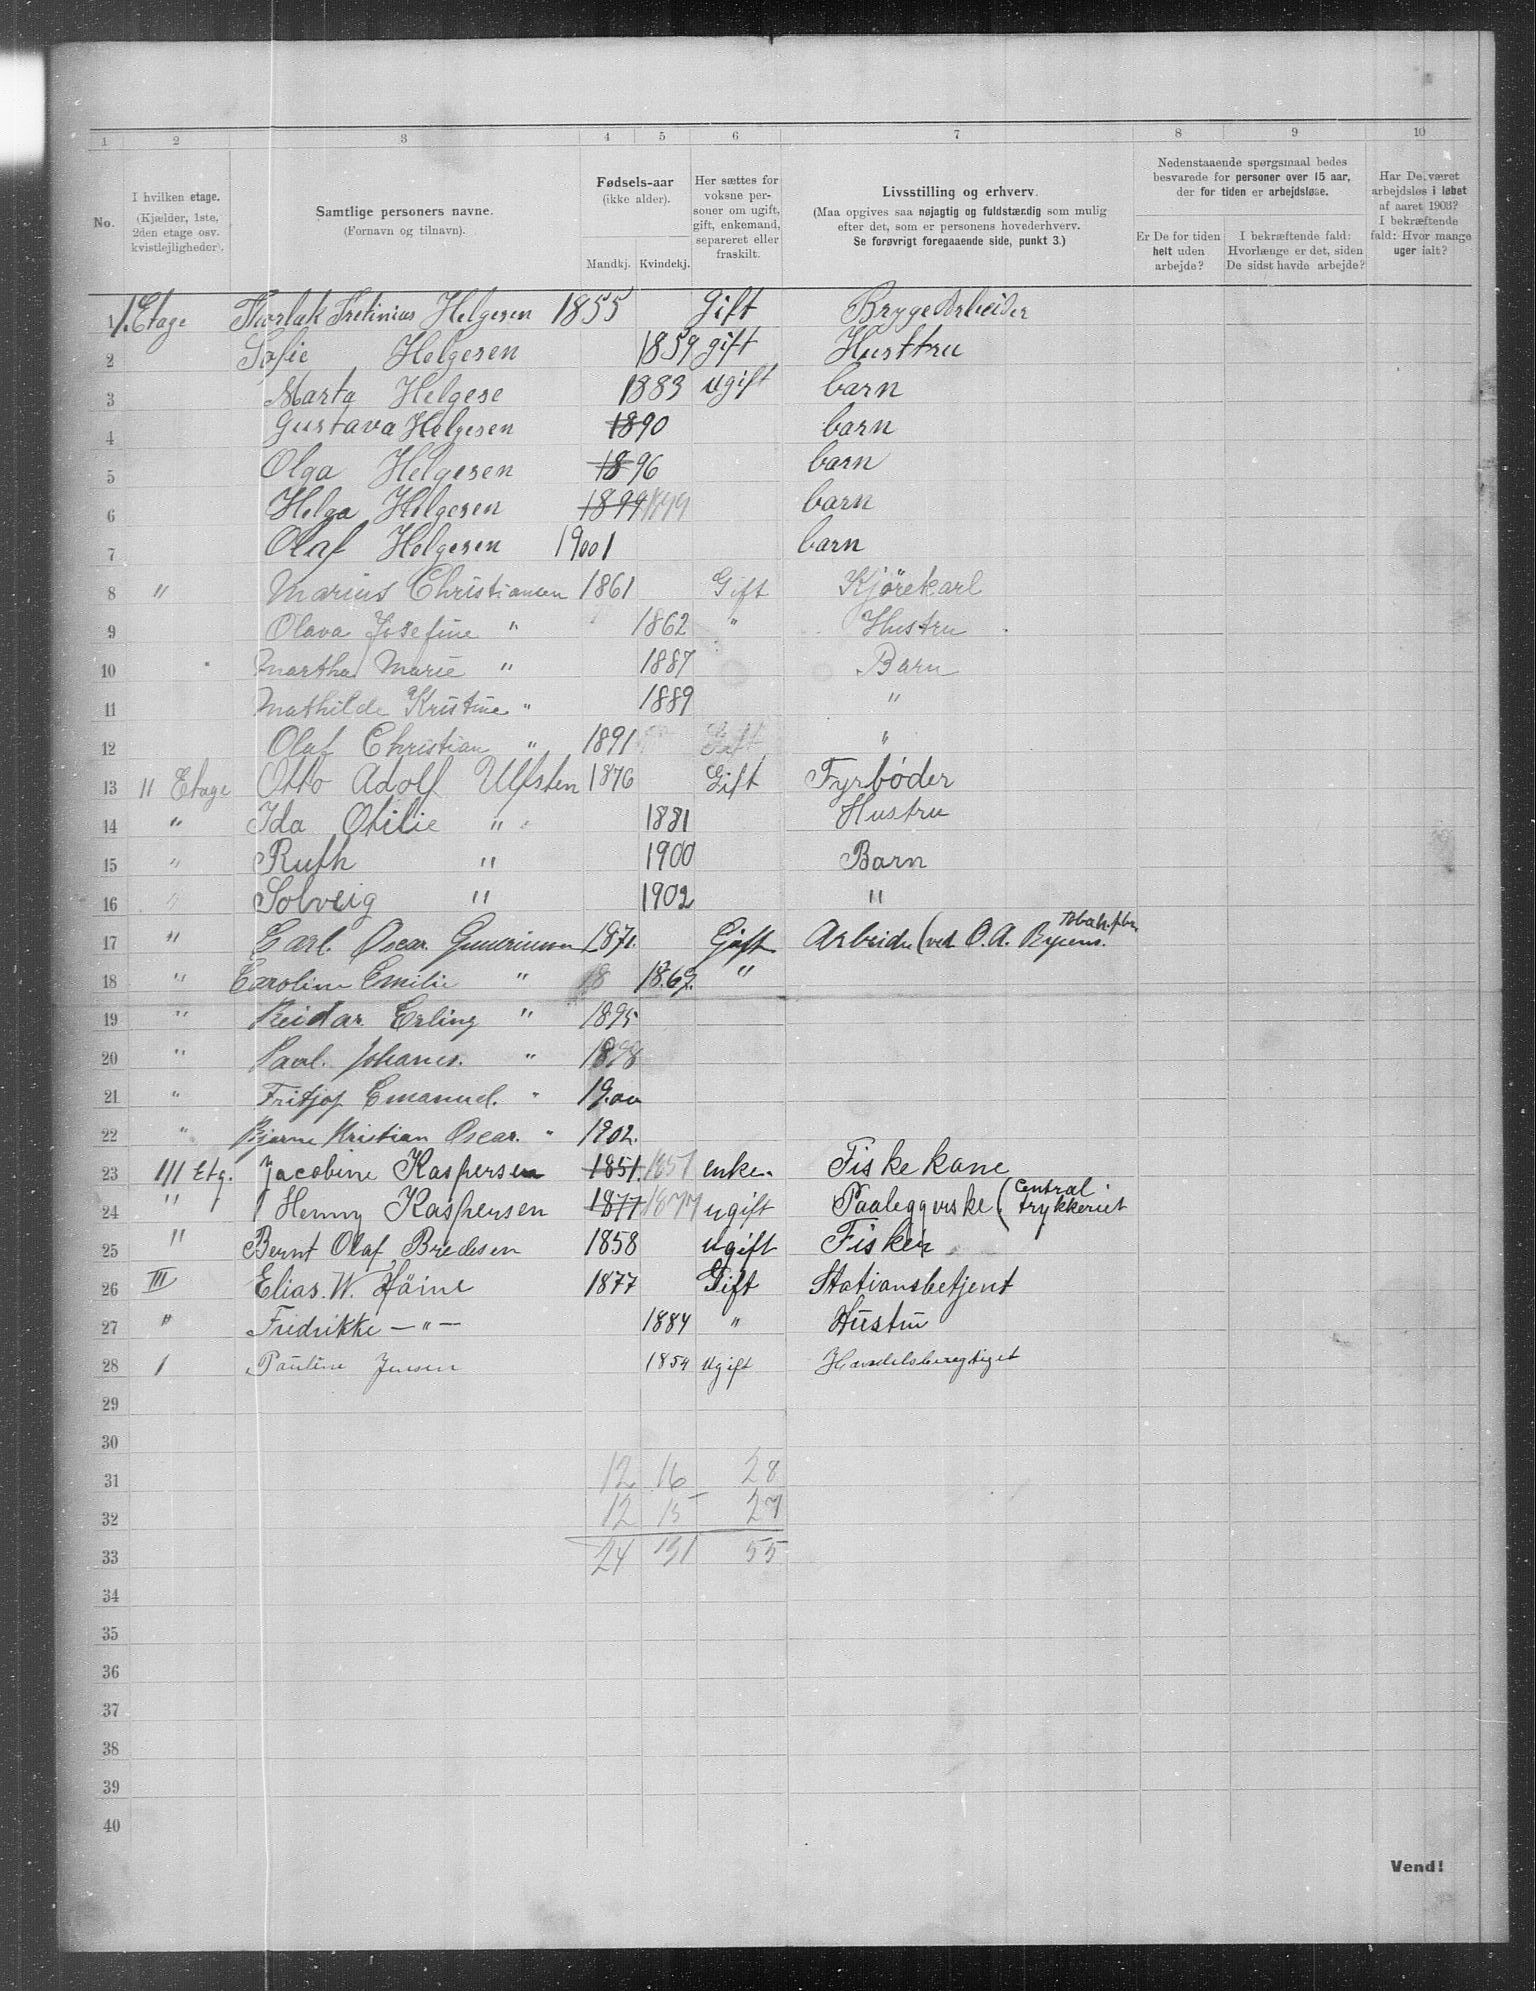 1 2 3 4 5 6 7 8 9 10
No.
I hvilken etage.
(Kjælder, 1ste,
2den etage osv.
kvistlejligheder).
Samtlige personers navne.
(Fornavn og tilnavn).
Fødsels-aar
(ikke alder).
Mandkj. Kvindekj.
Her sættes for
voksne per-
soner om ugift,
gift, enkemand,
separeret eller
fraskilt.
Livsstilling og erhverv.
(Maa opgives saa nøjagtig og fuldstændig som mulig
efter det, som er personens hovederhverv.
Se forøvrigt foregaaende side, punkt 3.)
Nedenstaaende spørgsmaal bedes
besvarede for personer over 15 aar,
der for tiden er arbejdsløse.
Er De for tiden
helt uden
arbejde?
I bekræftende fald:
Hvorlænge er det, siden
De sidst havde arbejde?
Har De været
arbejdsløs i løbet
af aaret 1903?
I bekræftende
fald: Hvor mange
uger ialt?
1 1. Etage Helgesen 1855 Gift Brygearbeider
2 Sofie Helgesen 1859 gift Husttru
3 Marta Helgese 1883 ugift barn
4 Gustava Helgesen 1890 barn
5 Olga Helgesen 1896 barn
6 Helga Helgesen 1899 1899 barn
7 Olaf Helgesen 1901 barn
8 " Marius Christiansen 1861 Gift Kjörekarl
9 Olava Josefine " 1862 " Hustru
10 Martha Marie " 1887 Barn
11 Mathilde Kristine " 1889 "
12 Olaf Christian " 1891 Gift "
13 II Etage Otto Adolf Ulfsten 1876 Gift Fyrbøder
14 " Ida Otilie " 1881 Hustru
15 " Ruth " 1900 Barn
16 " Solveig " 1902 "
17 " Carl Oscar 1871. Gift Arbeider (ved O. A.
18 " Caroline Emilie " 18 1867. "
19 " Reidar Erling " 1895
20 " Paul. Johanes. " 1898
21 " Fritjof Emanuel. " 19.00
22 " Bjarne Kristian Oscar. " 1902.
23 III Etg. Jacobine Kaspersen 1851. 1851 enke. Fiskekone
24 " Henny Kaspersen 1877 1877 ugift Paaleggerske (Central-
trykkeriet
25 " Bernt Olaf Bredesen 1858 ugift Fisker
26 III Elias. W. Höine 1877 Gift Stationsbetjent
27 " Fredrikke — " — 1884 " Hustru
28 1 Pauline Jensen 1854 Ugift Handelsberegtiget
29
30
31 12 16 28
32 12 15 27
33 24 31 55
34
35
36
37
38
39
40
Vend!